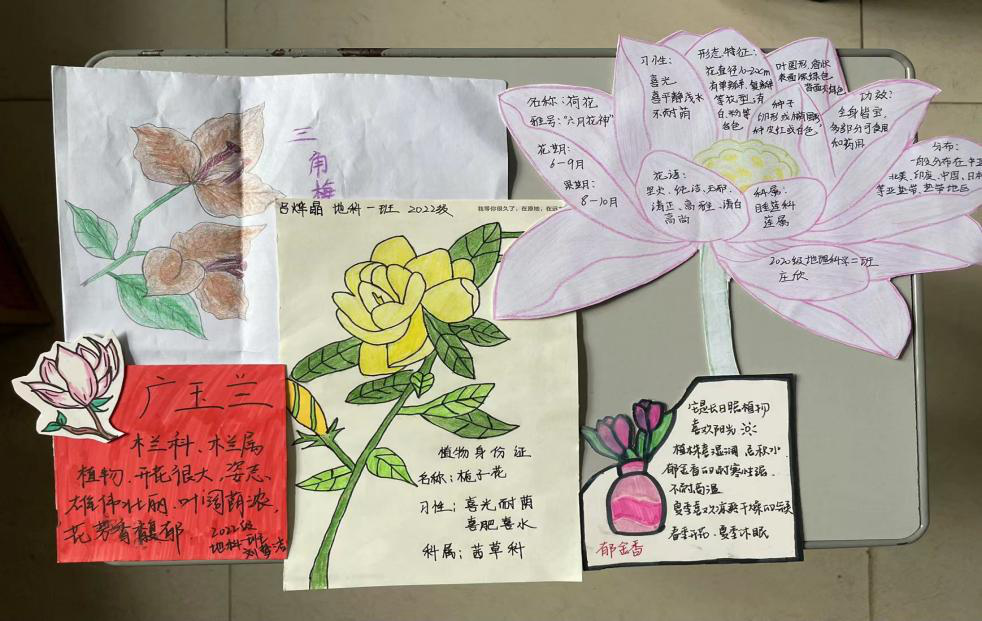 三
角
梅
吕烨晶 地科一班 2022级
植物身份证
名称：栀子花
习性：喜光,耐荫
喜肥,喜水
科属：茜草科
广玉兰
木兰科、木兰属
植物.开花很大,姿态
雄伟壮丽.叶阔荫浓,
花芳香馥郁.
2022级
地科一班
名称:荷花
雅号:"六月花神"
花期:
6-9月
果期:
8-10月
习性:
喜光
喜平静浅水
不耐荫
形态特征:
花直径10-20cm
有单瓣、复瓣
等花型,有
白、粉等
各色.
叶圆形,盾状
表面深绿色
种子
卵形或椭圆
种皮红或白色.
功效:
全身皆宝,
各部分可食用
和药用
分布:
一般分布在中亚
北美、印度、中国、日本
等亚热带、热带地区
花语:
坚贞、纯洁、无邪、
清正、高雅、清白
高尚
科属:
睡莲科
莲属
2020级地理科学二班
庄欣
它是长日照植物
喜欢阳光
植株喜湿润 忌积水.
郁金香的耐寒性强.
不耐高温
春季开花、夏季休眠
郁金香